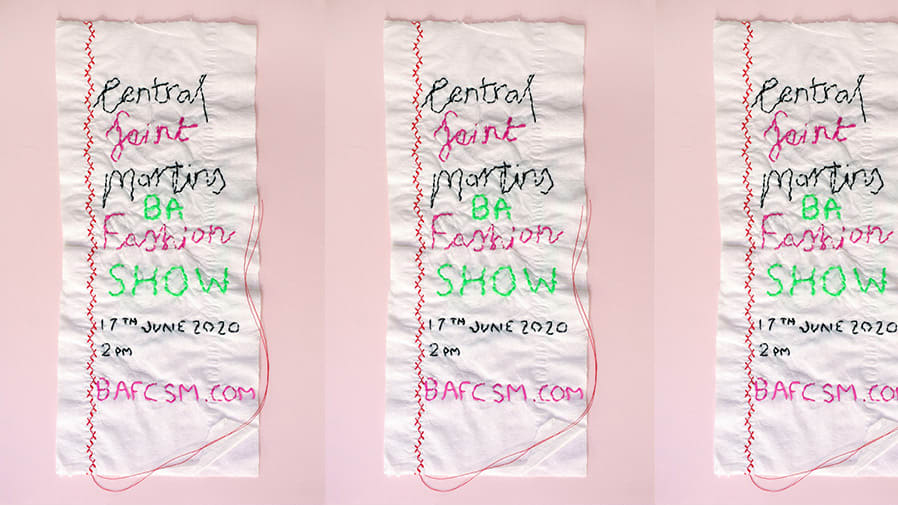 Central
Saint
Martins
BA
Fashion
SHOW
17TH JUNE 2020
2 PM
BAFCSM.COM
Central
Saint
Martins
BA
Fashion
SHOW
17TH JUNE 2020
2 PM
BAFCSM.COM
Central
Saint
Martins
BA
Fashion
SHOW
17TH JUNE 2020
2 PM
BAFCSM.CO